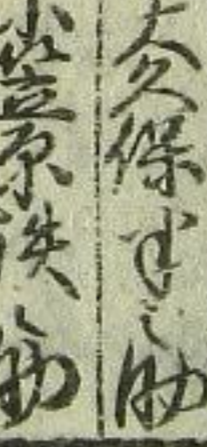 大久保半之助
小笠原鉄之助